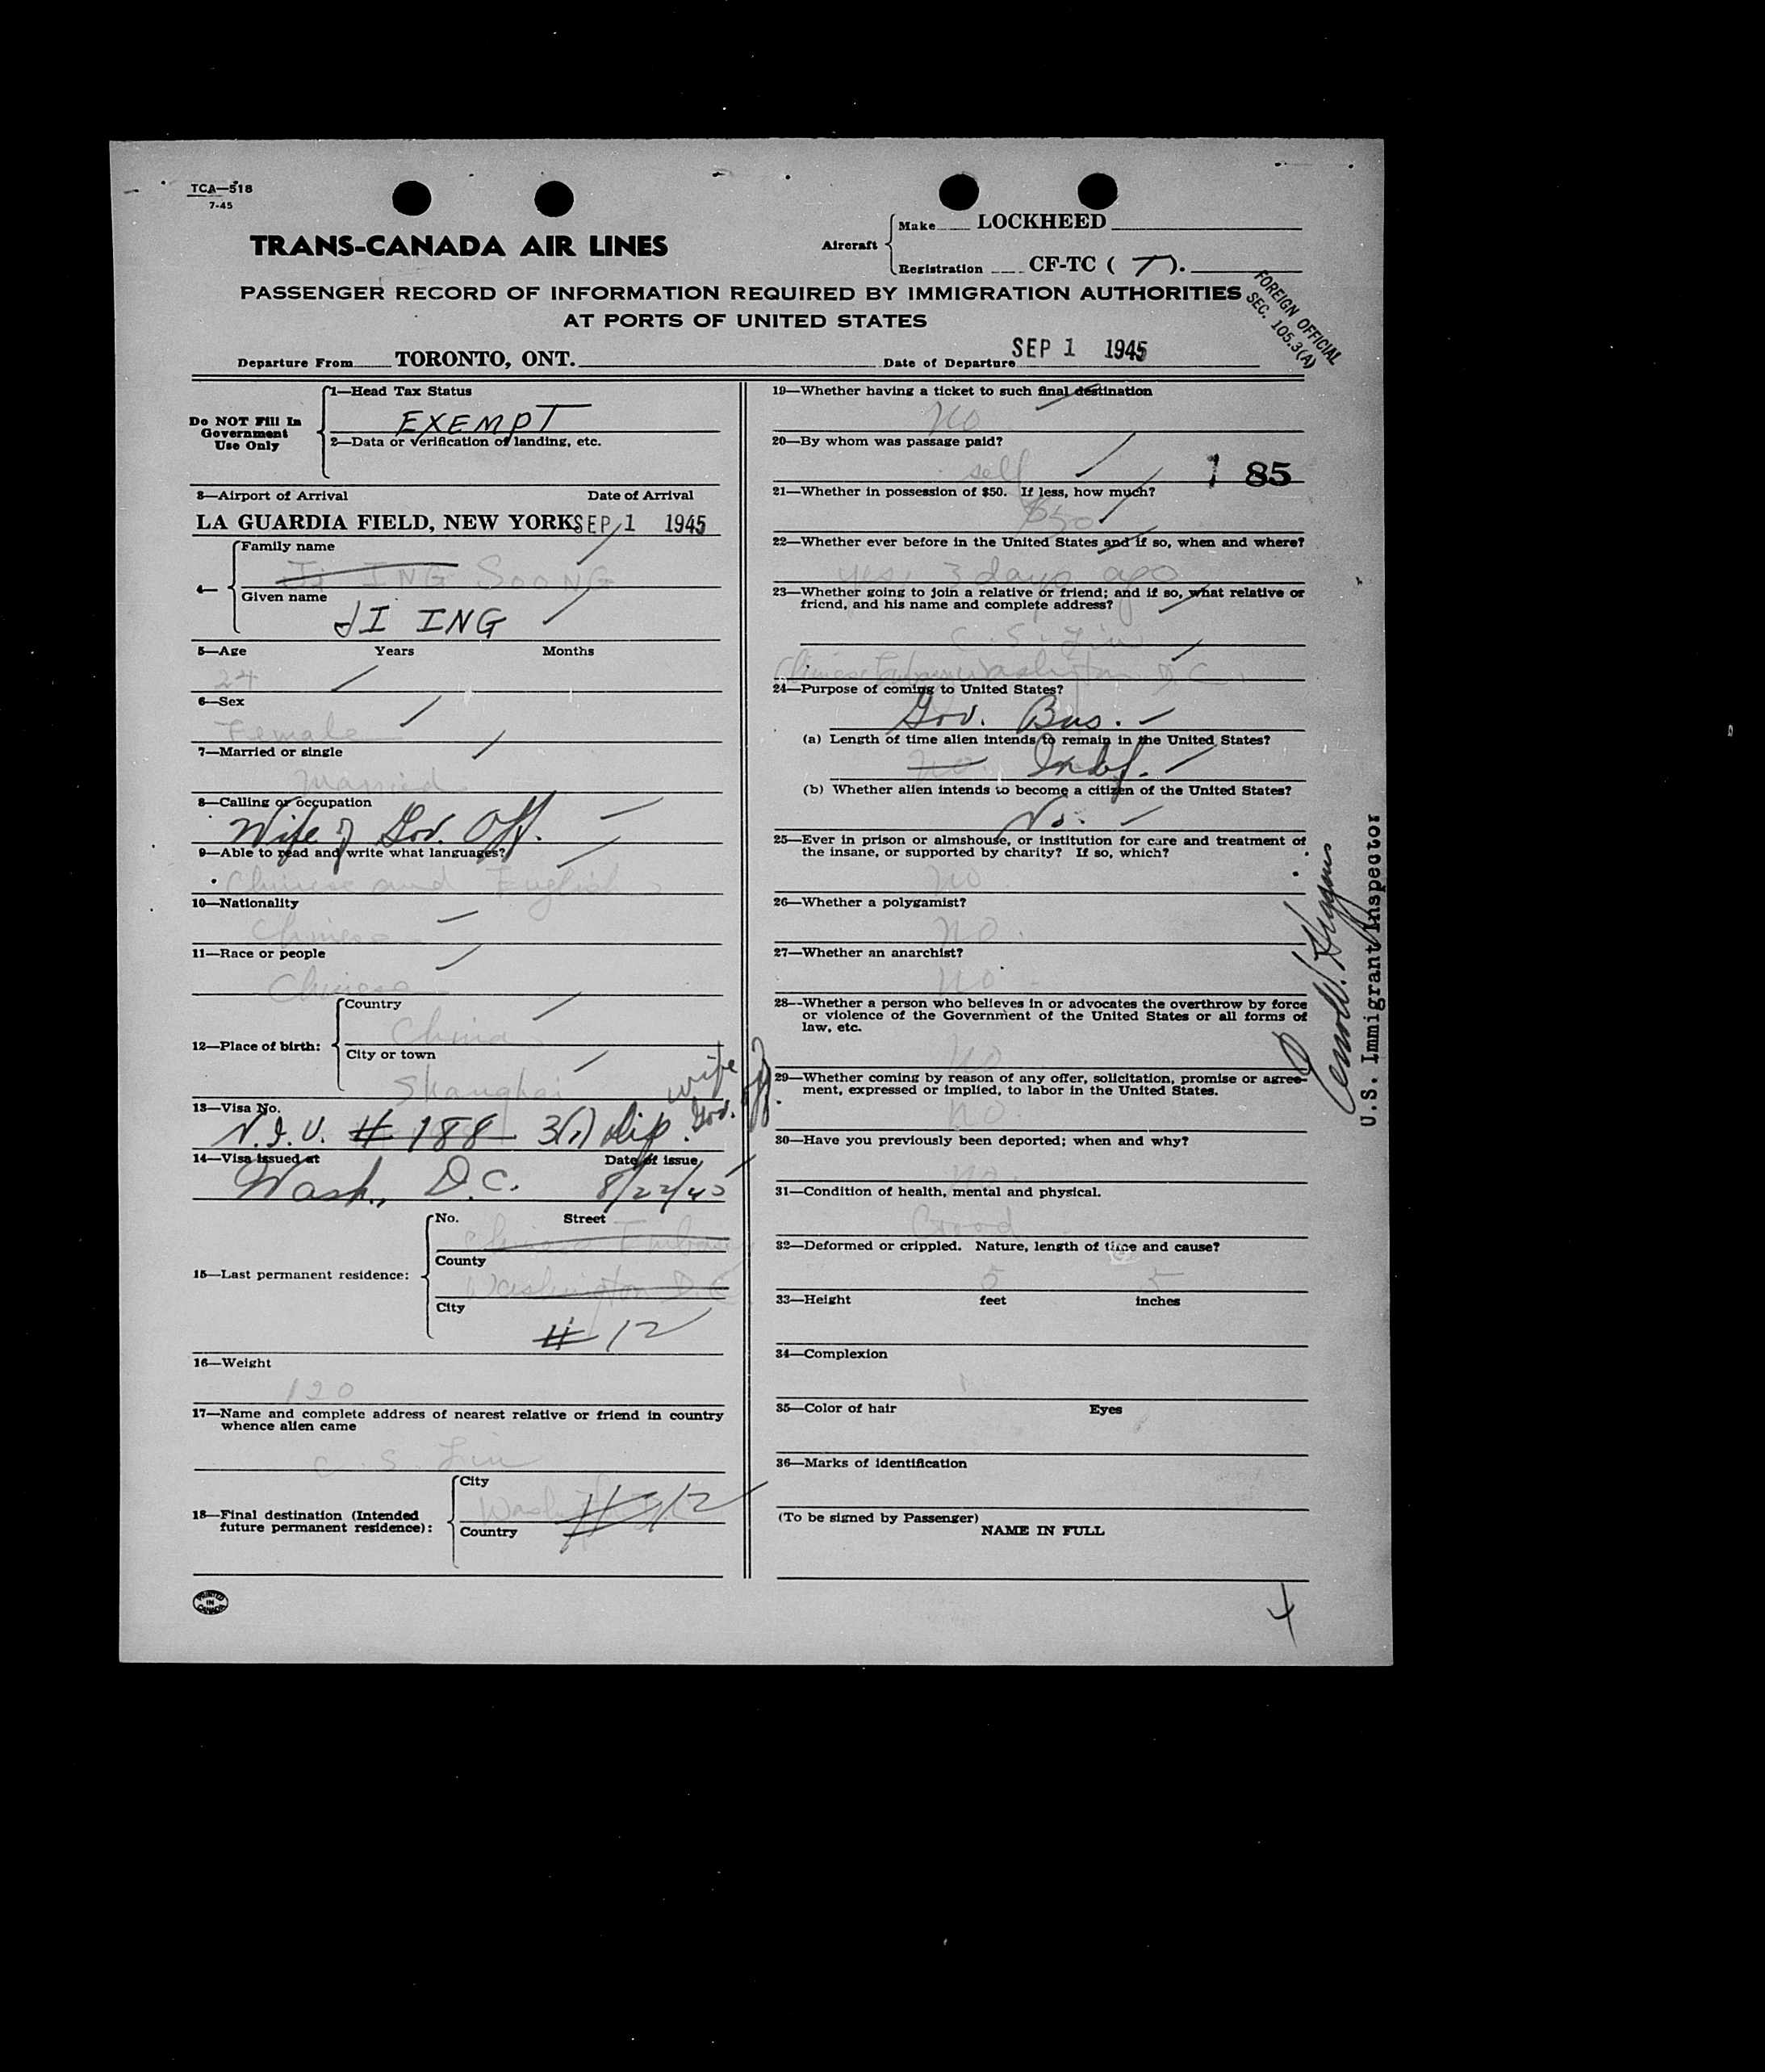 TCA—518
7-45
TRANS-CANADA AIR LINES
Aircraft
Make LOCKHEED
Registration CF-TC ( T ).
PASSENGER RECORD OF INFORMATION REQUIRED BY IMMIGRATION AUTHORITIES
AT PORTS OF UNITED STATES
FOREIGN OFFICIAL
SEC. 105.3(A)
Departure From TORONTO, ONT.
Date of Departure SEP 1 1945
Do NOT Fill In
Government
Use Only
1—Head Tax Status
EXEMPT
2—Data or verification of landing, etc.
3—Airport of Arrival Date of Arrival
LA GUARDIA FIELD, NEW YORK SEP 1 1945
4—
Family name
Ji ING SOONG
Given name
JI ING
5—Age Years Months
24
6—Sex
Female
7—Married or single
Married
8—Calling or occupation
Wife of Gov. Off.
9—Able to read and write what languages?
Chinese and English
10—Nationality
Chinese
11—Race or people
Chinese
12—Place of birth:
Country
China
City or town
Shanghai
13—Visa No.
N.I.V. # 188 3(1) Dip. wife Gov. Off.
14—Visa issued at Date of issue
Wash., D.C. 8/22/45
15—Last permanent residence:
No. Street
Chinese Embassy
County
Washington D.C.
City
# 12
16—Weight
120
17—Name and complete address of nearest relative or friend in country
whence alien came
C. S. Liu
18—Final destination (Intended
future permanent residence):
City
Wash # 12
Country
PRINTED
IN
CANADA
19—Whether having a ticket to such final destination
No
20—By whom was passage paid?
self
1 85
21—Whether in possession of $50. If less, how much?
$50
22—Whether ever before in the United States and if so, when and where?
yes, 3 days ago
23—Whether going to join a relative or friend; and if so, what relative or
friend, and his name and complete address?
C. S. Liu
Chinese Embassy Washington D.C.
24—Purpose of coming to United States?
Gov. Bus.
(a) Length of time alien intends to remain in the United States?
no. Indf.
(b) Whether alien intends to become a citizen of the United States?
No.
25—Ever in prison or almshouse, or institution for care and treatment of
the insane, or supported by charity? If so, which?
no
26—Whether a polygamist?
no.
27—Whether an anarchist?
no
28—Whether a person who believes in or advocates the overthrow by force
or violence of the Government of the United States or all forms of
law, etc.
no
29—Whether coming by reason of any offer, solicitation, promise or agree-
ment, expressed or implied, to labor in the United States.
no.
30—Have you previously been deported; when and why?
no.
31—Condition of health, mental and physical.
Good
32—Deformed or crippled. Nature, length of time and cause?
5 5
33—Height feet inches
34—Complexion
35—Color of hair Eyes
36—Marks of identification
(To be signed by Passenger)
NAME IN FULL
U.S. Immigrant Inspector